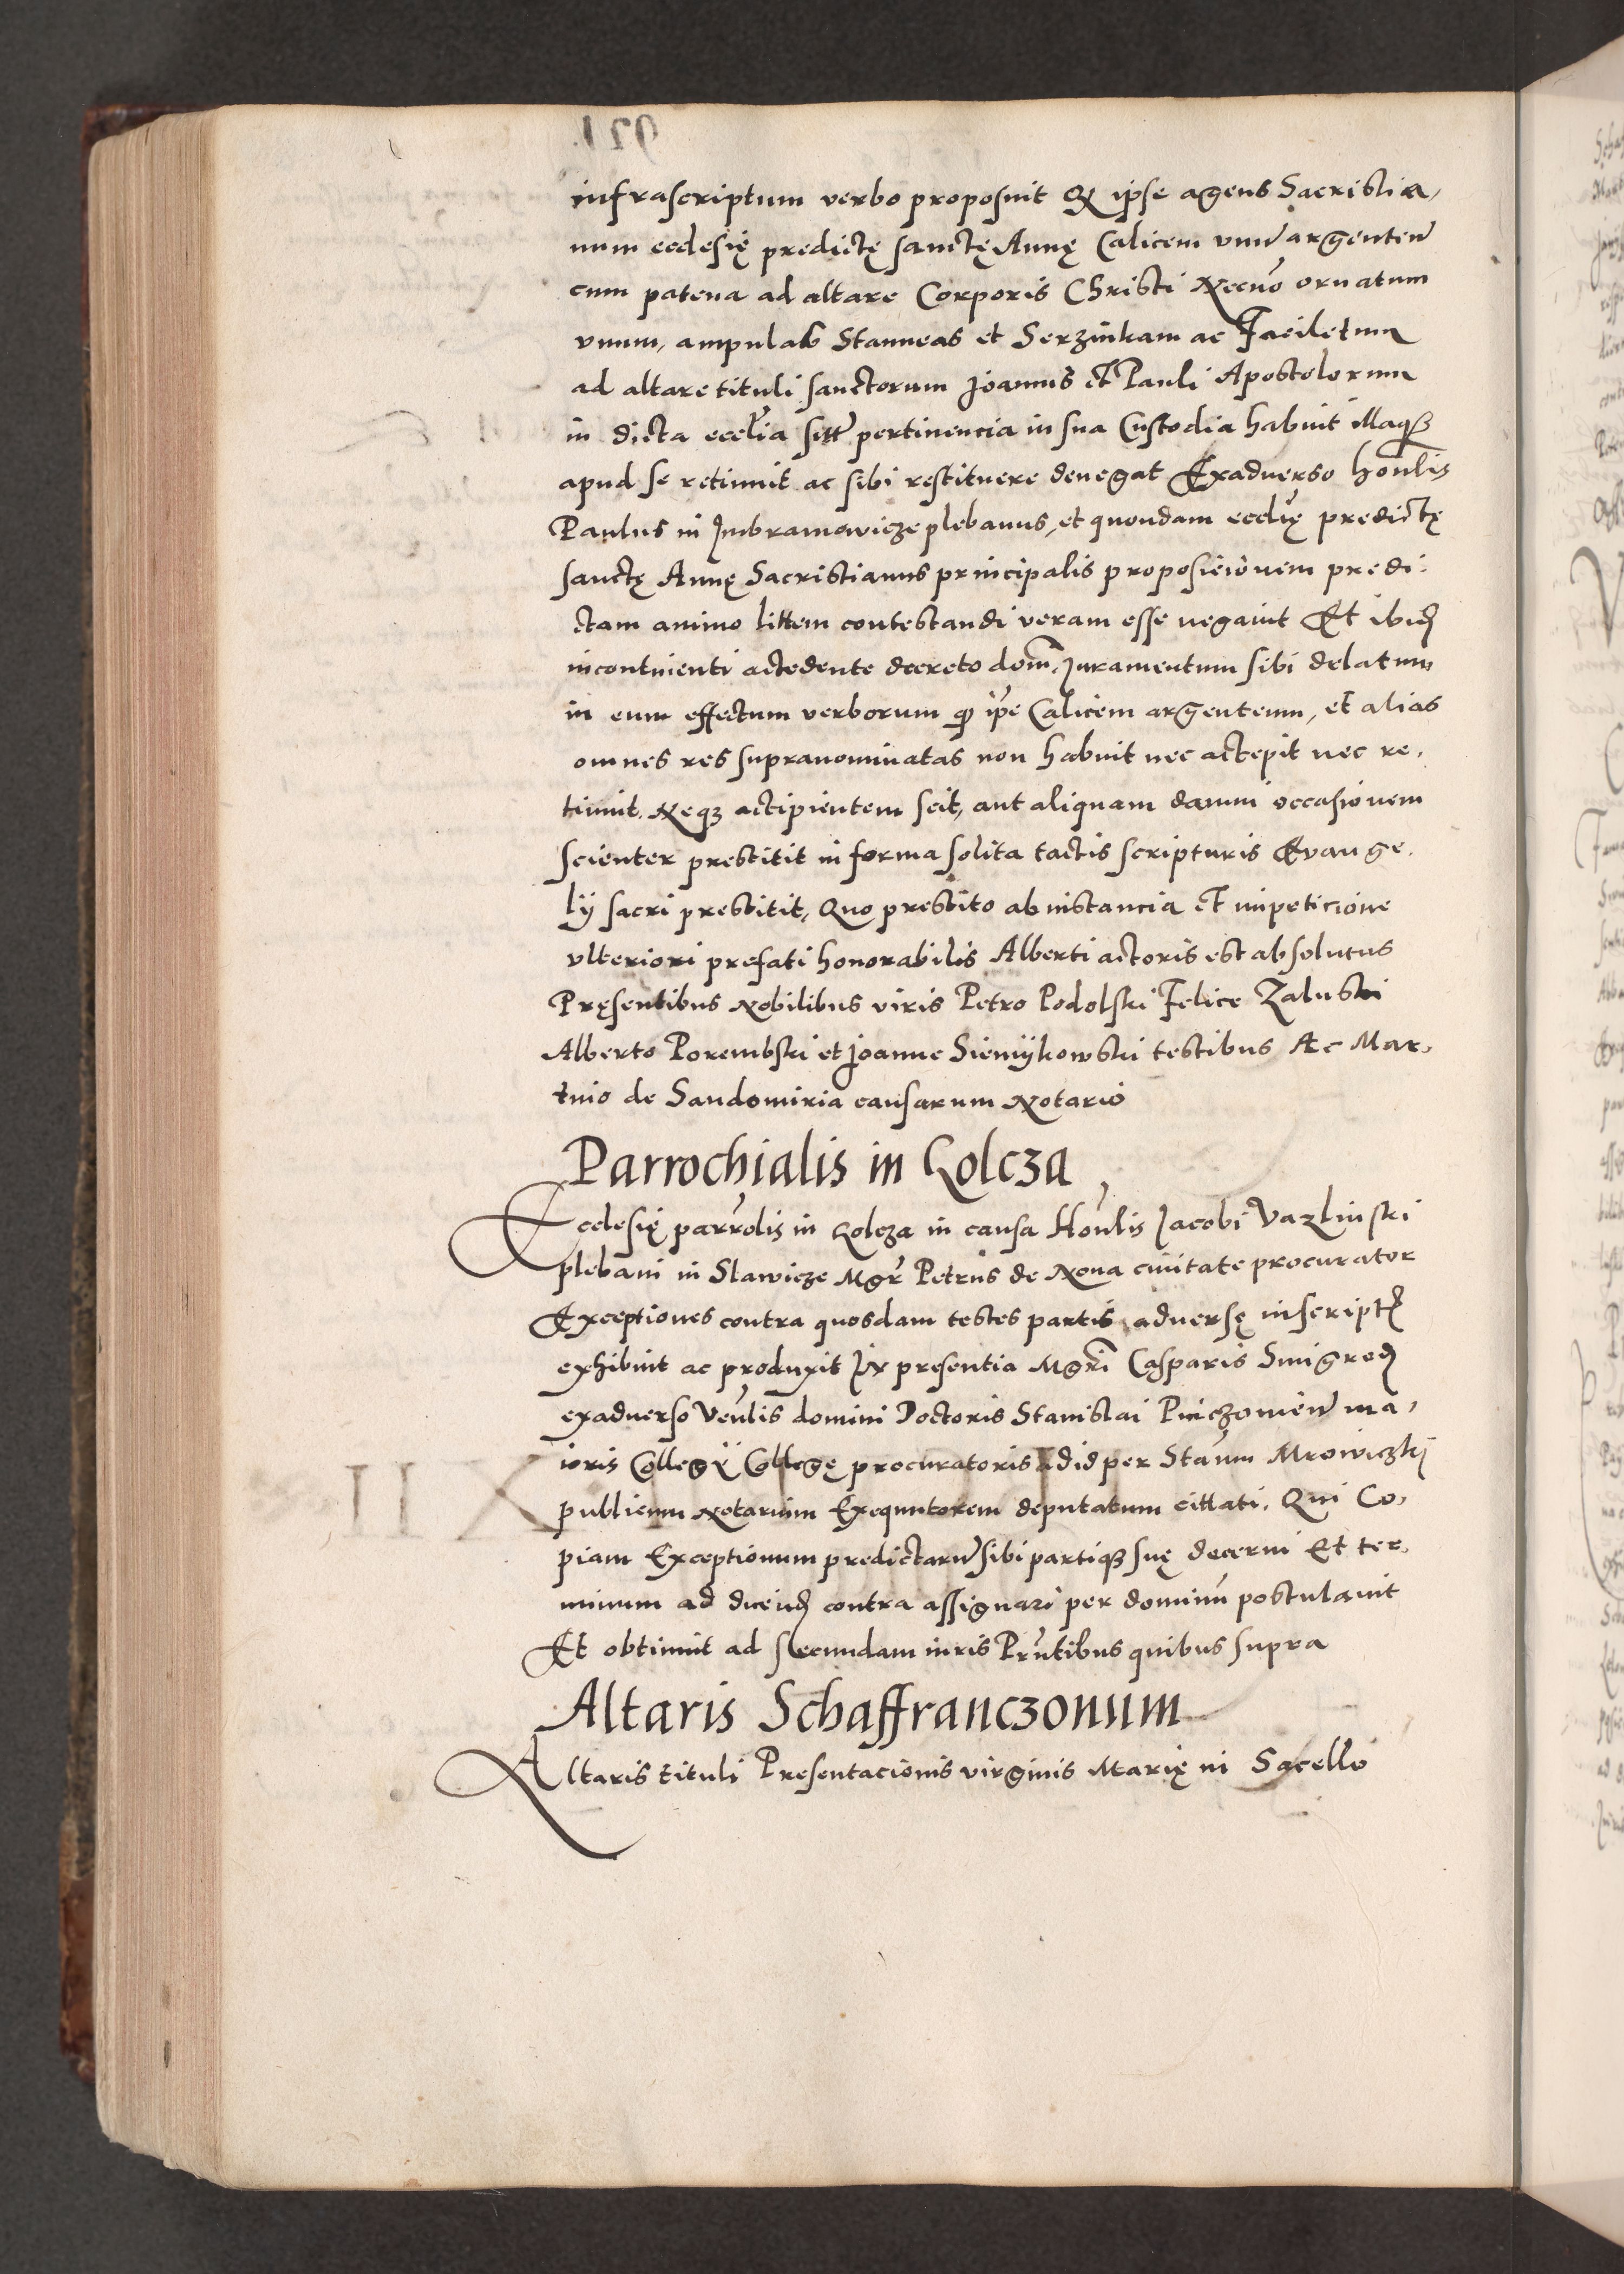 infrascriptum verbo proposuit Qz ipse agens Sacristia,
num ecclesię predictę sanctę Annę Calicem vnū argenteū
cum patena ad altare Corporis Christi Necnō ornatum
vnum, ampulas Stanneas et Serzinkam ac Faciletum
ad altare tituli sanctorum Joannis et Pauli Apostolorum
in dicta eccłia sitū pertinencia in sua Custodia habuit illaqz
apud se retinuit ac sibi restituere denegat Exaduerso honłis
Paulus in Imbramowicze plebanus, et quondam eccłię predictę
sanctę Annę Sacristianus principalis proposicionem predi-
ctam animo littem contestandi veram esse negauit Et ibid
incontinenti accedente decreto dom̄. Juramentum sibi delatum
in eum effectum verborum qz ip̄e Calicem argenteum, et alias
omnes res supranominatas non habuit nec accepit nec re,
tinuit, Neqz accipientem scit, aut aliquam damni occasionem
scienter prestitit in forma solita tactis scripturis Euange,
lij sacri prestitit, Quo prestito ab instancia et impeticione
vlteriori prefati honorabilis Alberti actoris est absolutus
Pręsentibus Nobilibus viris Petro Podolski Felice Zaluski
Alberto Porembski et Joanne Sieniykowski testibus Ac Mar,
tino de Sandomiria causarum Notario
Parrochialis in Golcza
Ecclesię parrolis in Golcza in causa Honlis Jacobi Vazlinski
plebani in Slawicze Mgr Petrus de Noua ciuitate procurator
Exceptiones contra quosdam testes partis aduersę inscript
exhibuit ac produxit In presentia Mgri Casparis Smigrod
exaduerso Venlis domini Doctoris Stanislai ma,
ioris Collegij Collegę procuratoris ad id per Staum Mrowiczkj
publicum Notarium Exequutorem deputatum cittati. Qui Co,
piam Exceptionum predictarū sibi partiqz suę decerni Et ter,
minum ad dicend contra assignari per dominū postulauit
Et obtinuit ad secundam iuris Prntibus quibus supra
Altaris Schaffranczonum
Altaris tituli Presentacionis virginis Marię in Sacello